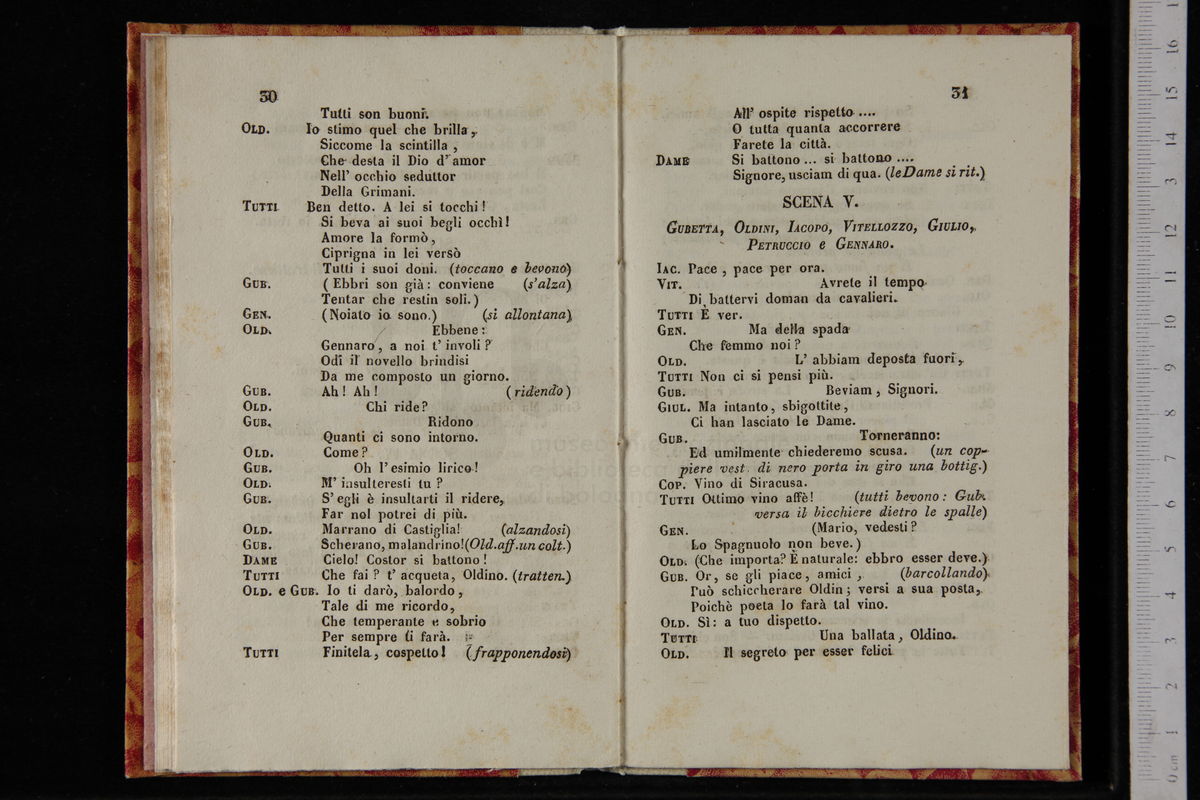 30
Tutti son buoni.
OLD. Io stimo quel che brilla,
Siccome la scintilla ,
Che desta il Dio d'amor
Nell' occhio seduttor
Della Grimani.
TUTTI Ben detto. A lei si tocchi!
Si beva ai suoi begli occhi!
Amore la formò,
Ciprigna in lei versò
Tutti i suoi doni. (toccano e bevono)
GUB. (Ebbri son già: conviene (s'alza)
Tentar che restin soli.)
GEN. (Noiato io sono.) (si allontana)
OLD. Ebbene:
Gennaro, a noi t' involi?
Odi il novello brindisi
Da me composto un giorno.
GUB. Ah! Ah! (ridendo)
OLD. Chi ride?
GUB. Ridono
Quanti ci sono intorno.
OLD. Come?
GUB. Oh l'esimio lirico!
OLD. M' insulteresti tu?
GUB. S' egli è insultarti il ridere,
Far nol potrei di più.
OLD. Marrano di Castiglia! (alzandosi)
GUB. Scherano, malandrino!(Old.aff.un colt.)
DAME Cielo! Costor si battono!
TUTTI Che fai? t' acqueta, Oldino. (tratten.)
OLD. e GUB. Io ti darò, balordo,
Tale di me ricordo,
Che temperante e sobrio
Per sempre ti farà.
TUTTI Finitela, cospetto! (frapponendosi)
31
All' ospite rispetto ....
O tutta quanta accorrere
Farete la città.
DAME Si battono ... si battono ....
Signore, usciam di qua. (le Dame si rit.)
SCENA V.
GUBETTA, OLDINI, IACOPO, VITELLOZZO, GIULIO,
PETRUCCIO e GENNARO.
IAC. Pace , pace per ora.
VIT. Avrete il tempo
Di battervi doman da cavalieri.
TUTTI È ver.
GEN. Ma della spada
Che femmo noi?
OLD. L' abbiam deposta fuori,
TUTTI Non ci si pensi più.
GUB. Beviam, Signori.
GIUL. Ma intanto, sbigottite,
Ci han lasciato le Dame.
GUB. Torneranno:
Ed umilmente chiederemo scusa. (un cop-
piere vest. di nero porta in giro una bottig.)
COP. Vino di Siracusa.
TUTTI Ottimo vino affè! (tutti bevono: Gub.
versa il bicchiere dietro le spalle)
GEN. (Mario, vedesti?
Lo Spagnuolo non beve.)
OLD. (Che importa? È naturale: ebbro esser deve.)
GUB. Or, se gli piace, amici , (barcollando)
Può schiccherare Oldin; versi a sua posta,
Poichè poeta lo farà tal vino.
OLD. Sì: a tuo dispetto.
TUTTI Una ballata, Oldino.
OLD. Il segreto per esser felici